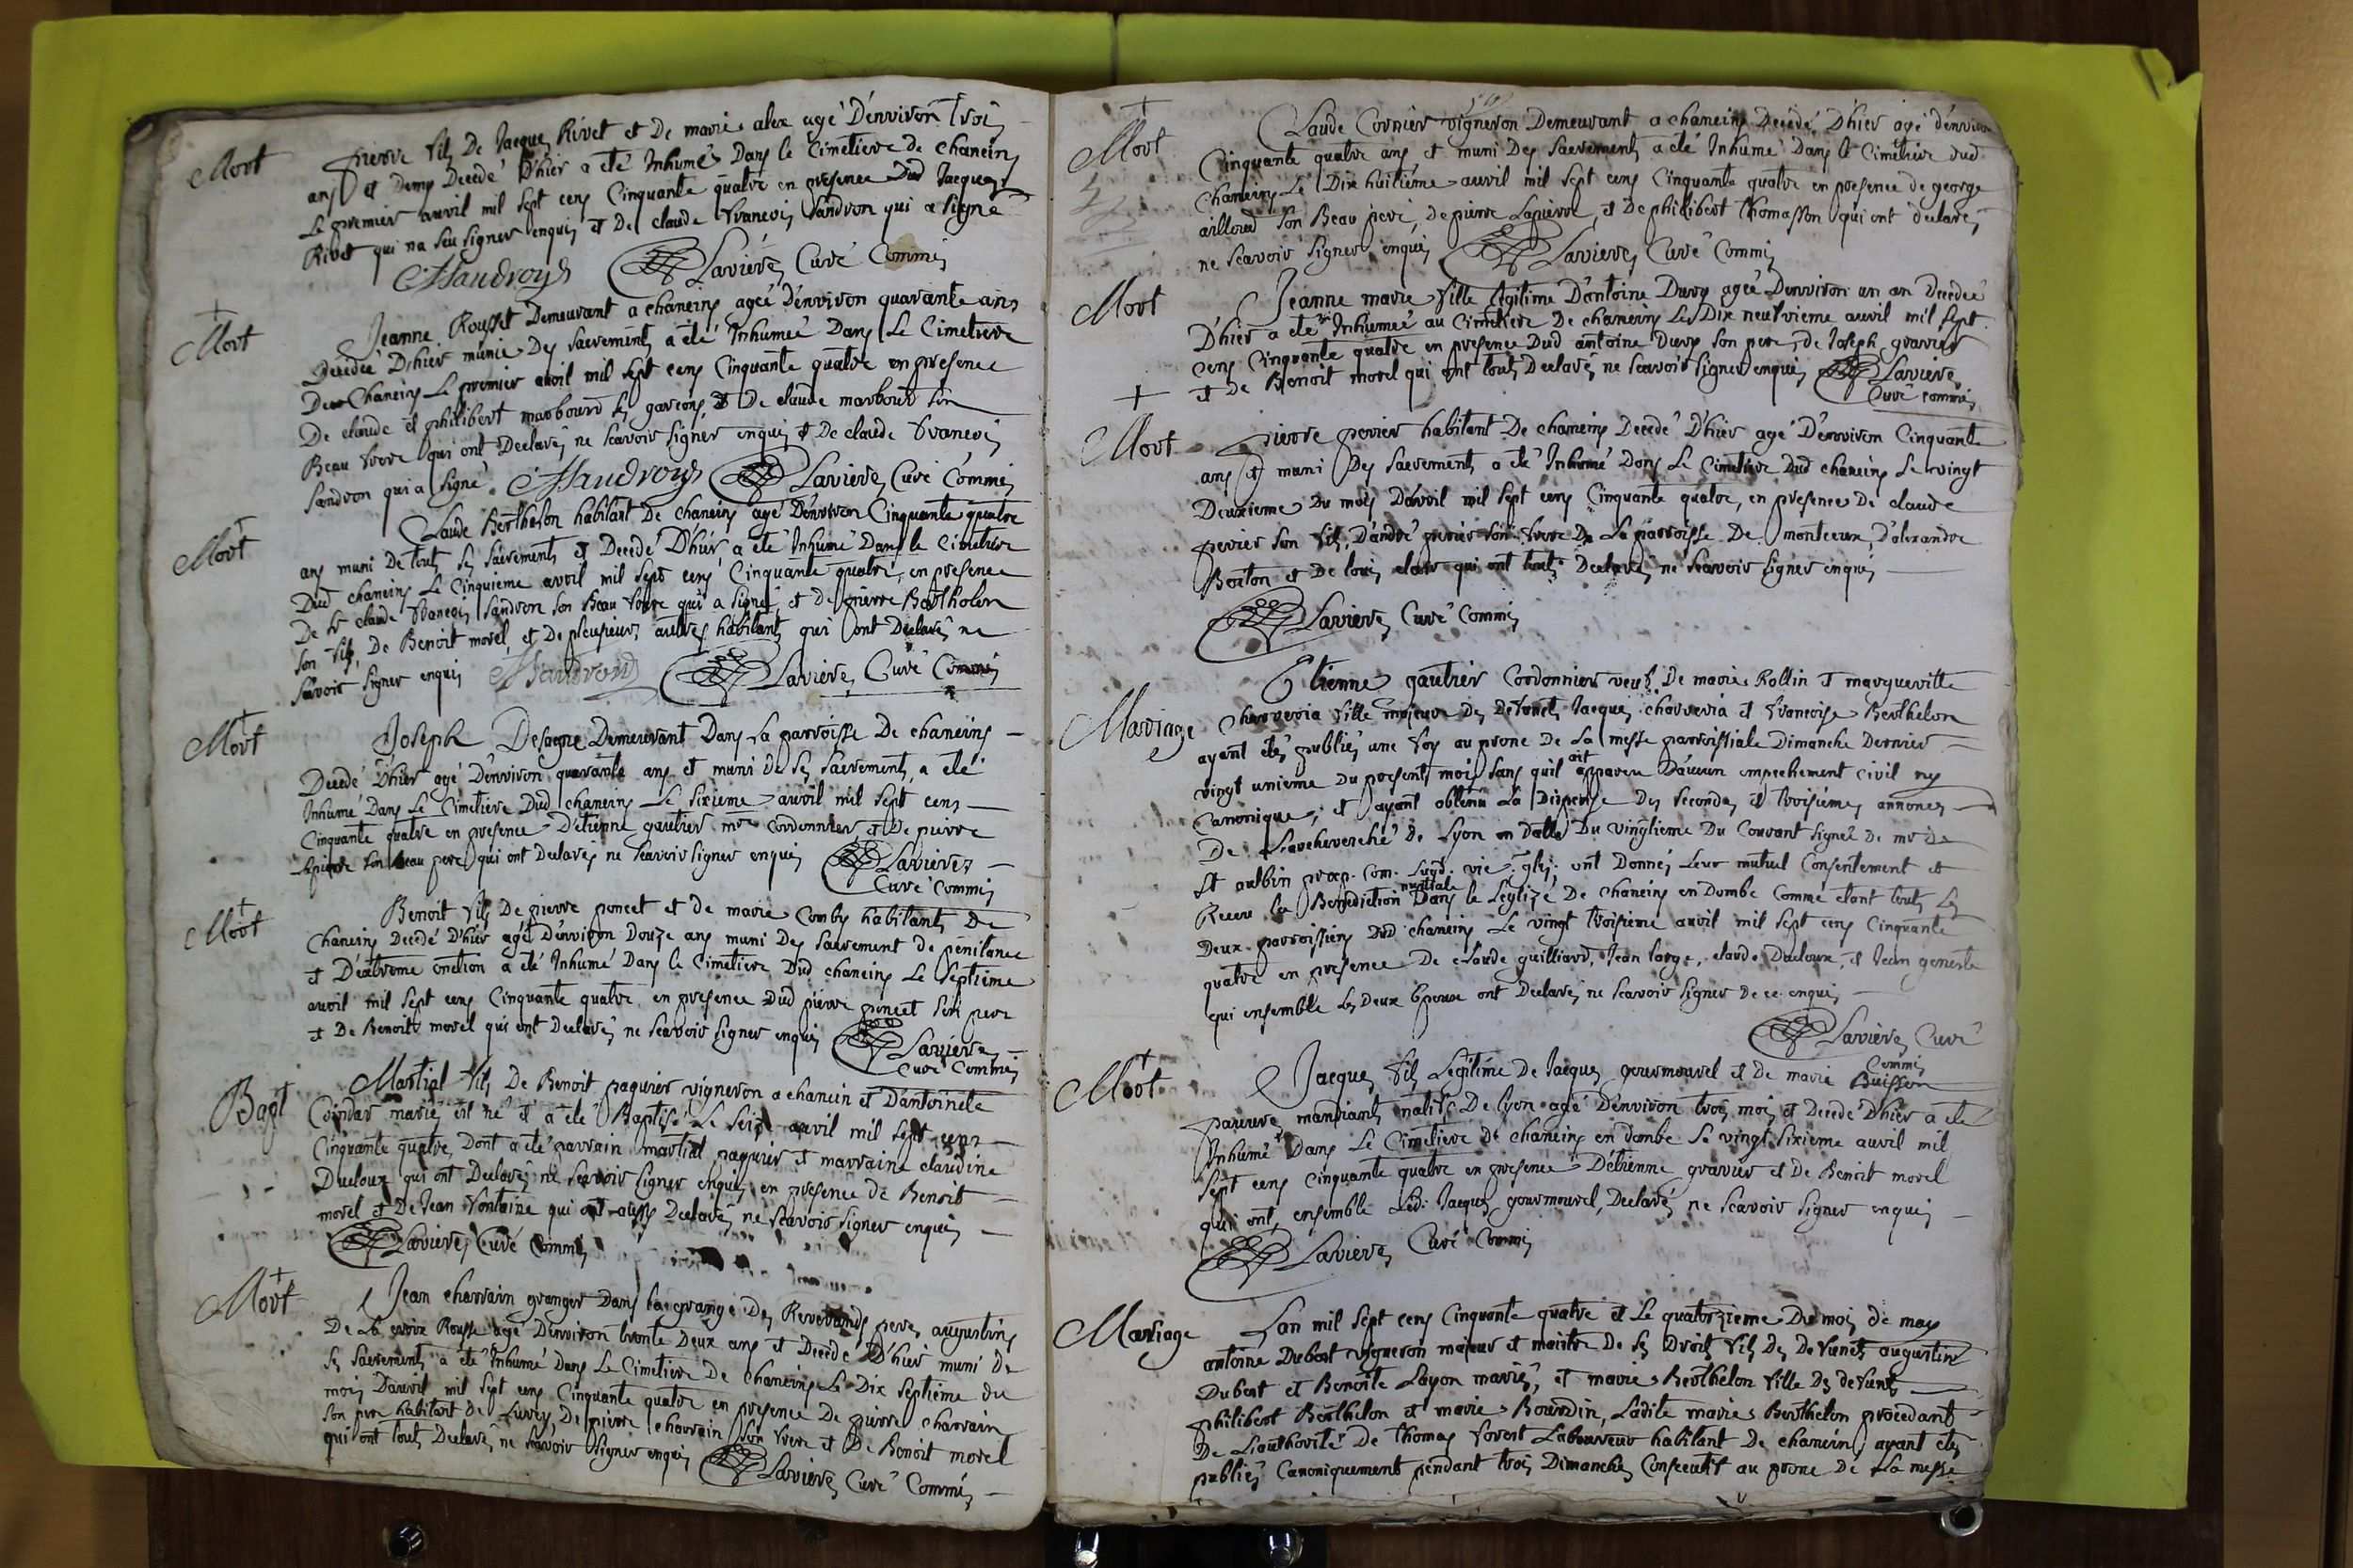 Mort
pierre fils De Jacques Rivet et De marie alex agé D'environ trois
ans et Demy Decedé D'hier a été Inhumé Dans le Cimetiere de chaneins
Le premier avril mil sept cens Cinquante quatre en presence Dud Jacques
Rivet qui na sçu signer enquis et De claude francois Sandron qui a signé
Laviere, Curé Commis
+
Mort
Jeanne Rousset Demeurant a chaneins ageé D'environ quarante ans
Decedée D'hier munie Des sacrements a été Inhumeé Dans Le Cimetiere
De Chaneins Le premier avril mil sept cens Cinquante quatre en presence
De claude et philibert marbourd ses garcons, et De claude marbourd son
Beau frere qui ont Declarés ne scavoir signer enquis et De claude francois
Sandron qui a signé. Laviere, Curé Commis
+
Mort
Claude Berthelon habitant De chaneins agé D'environ Cinquante quatre
ans muni De touts ses sacrements et Decedé D'hier a été Inhumé Dans le Cimetiere
Dud chaneins Le Cinquieme avril mil sept cens Cinquante quatre, en presence
De Sr claude francois Sandron son Beau frere qui a signé, et De pierre Berthelon
son fils, De Benoit morel, et De plusieurs autres habitants qui ont Declarés ne
scavoir signer enquis Laviere, Curé Commis
+
Mort
Joseph Desagne Demeurant Dans La parroisse De chaneins
Decedé D'hier agé D'environ quarante ans et muni de ses sacrements, a été
Inhumé Dans Le Cimetiere Dud chaneins Le sixieme avril mil sept cens
Cinquante quatre en presence D'etienne gautier mtre cordonnier et De pierre
Lapierre son beau pere qui ont Declarés ne scavoir signer enquis Laviere,
Curé Commis
+
Mort
Benoit fils De pierre poncet et de marie Comby habitants De
Chaneins Decedé D'hier agé D'environ Douze ans muni Des sacrement de penitance
et D'extreme onction a été Inhumé Dans le Cimetiere Dud chaneins Le septieme
avril mil sept cens Cinquante quatre en presence Dud pierre poncet son pere
et De Benoit morel qui ont Declarés ne scavoir signer enquis Laviere,
Curé Commis
Bapt
Martial fils De Benoit paquier vigneron a chanein et D'antoinete
Coindar mariés est né et a été Baptisé Le seize avril mil sept cens
Cinquante quatre, Dont a été parrain martial paquier et marraine claudine
Ducloux qui ont Declarés ne scavoir signer enquis, en presence de Benoit
morel et De Jean fontaine qui ont aussy Declarés ne scavoir signer enquis
Laviere, Curé Commis
+
Mort
Jean charrain granger Dans la grange Des Reverands peres augustins
De La croix Rousse agé D'environ trente Deux ans et Decedé D'hier muni De
ses sacrements a été Inhumé Dans Le Cimetiere De Chaneins Le Dix septieme du
mois D'avril mil sept cens Cinquante quatre en presence De pierre charrain
son pere habitant De Lurcy, De pierre charrain son frere et De Benoit morel
qui ont touts Declarés ne scavoir signer enquis Laviere, Curé Commis
+
Mort
Claude Cornier vigneron Demeurant a chaneins Decedé D'hier agé d'environ
Cinquante quatre ans et muni Des sacrements a été Inhumé Dans le Cimetiere dud
Chaneins Le Dix huitiéme avril mil sept cens Cinquante quatre en presence de george
ailloud son Beau pere, de pierre Lapierre, et De philibert thomasson qui ont declarés
ne scavoir signer enquis Laviere, Curé Commis
Mort
Jeanne marie fille legitime D'antoine Dury ageé D'environ un an Decedeé
D'hier a été Inhumeé au Cimetiere De chaneins Le Dix neufvieme avril mil sept
cens Cinquante quatre en presence Dud antoine Dury son pere, de Joseph gravier
et De Benoit morel qui ont touts Declarés ne scavoir signer enquis Laviere,
Curé commis
+
Mort
pierre perier habitant De chaneins Decedé D'hier agé D'environ Cinquante
ans et muni Des sacrements a été Inhumé Dans Le Cimetiere Dud chaneins Le vingt
Deuxieme Du mois D'avril mil sept cens Cinquante quatre, en presence De claude
perier son fils, D'andré perier son frere De La parroisse De monteeux, D'alexandre
Berton et De louis clair qui ont touts Declarés ne scavoir signer enquis
Laviere, Curé Commis
Mariage
Etienne gautier Cordonnier veuf De marie Rollin et margueritte
Charveria fille majeure Des Defuncts Jacques charveria et francoise Berthelon
ayant étés publiés une fois au prone De La messe parroissiale Dimanche Dernier
vingt unieme Du present mois sans quil ait apparu D'aucun empechement civil ny
Canonique, et ayant obtenu La Dispense Des secondes et troisiémes annonces
De L'archeverché De Lyon en datte Du vingtieme Du Courant signeé De mr De
St aulbin vic. gle; ont Donnés Leur mutuel Consentement et
Receu la Benediction nuptiale Dans le L'eglize De chaneins en Dombe Comme etant touts Les
Deux parroissiens Dud chaneins Le vingt troisieme avril mil sept cens Cinquante
quatre en presence De claude guilliard, Jean large, claude Ducloux, et Jean geneste
qui ensemble Les Deux Epoux ont Declarés ne scavoir signer de ce enquis
Laviere, Curé
Commis
+
Mort
Jacques fils Legitime de Jacques gourmourel et de marie Buisson
pauvres mandiants natifs De lyon agé D'environ trois mois et Decedé D'hier a été
Inhumé Dans Le Cimetiere De chaneins en dombe Le vingt sixieme avril mil
sept cens cinquante quatre en presence D'etienne gravier et De Benoit morel
qui ont, ensemble Led. Jacques gourmourel, Declarés ne scavoir signer enquis
Laviere, Curé Commis
Mariage
Lan mil sept cens Cinquante quatre et Le quatorzieme Du mois de may
antoine Dubost vigneron majeur et maitre De ses Droits fils Des Defuncts augustin
Dubost et Benoite Layon mariés, et marie Berthelon fille Des defunts
philibert Berthelon et marie Bourdin, Ladite marie Berthelon procedant
De L'authorité De thomas forest Laboureur habitant De chaneins, ayant etés
publiés Canoniquement pendant trois Dimanches Consecutif au prone De La messe